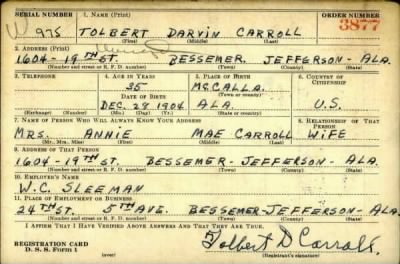 SERIAL NUMBER 1. NAME (Print) ORDER NUMBER
W 975 TOLBERT DARVIN CARROLL 3877
(First) (Middle) (Last)
2. ADDRESS (Print)
1604-19TH ST. BESSEMER, JEFFERSON-ALA.
(Number and street or R. F. D. number) (Town) (County) (State)
3. TELEPHONE 4. AGE IN YEARS 5. PLACE OF BIRTH 6. COUNTRY OF CITIZENSHIP
35 MCCALLA.
DATE OF BIRTH (Town or county)
DEC. 28 1904 ALA. U.S.
(Exchange) (Number) (Mo.) (Day) (Yr.) (State or country)
7. NAME OF PERSON WHO WILL ALWAYS KNOW YOUR ADDRESS 8. RELATIONSHIP OF THAT PERSON
MRS. ANNIE MAE CARROLL WIFE
(Mr., Mrs., Miss) (First) (Middle) (Last)
9. ADDRESS OF THAT PERSON
1604-19TH ST. BESSEMER-JEFFERSON-ALA.
(Number and street or R. F. D. number) (Town) (County) (State)
10. EMPLOYER'S NAME
W.C. SLEEMAN
11. PLACE OF EMPLOYMENT OR BUSINESS
24TH ST. 5TH AVE. BESSEMER-JEFFERSON-ALA.
(Number and street or R. F. D. number) (Town) (County) (State)
I AFFIRM THAT I HAVE VERIFIED ABOVE ANSWERS AND THAT THEY ARE TRUE.
REGISTRATION CARD
D. S. S. Form 1 (over) Tolbert D Carroll
(Registrant's signature)